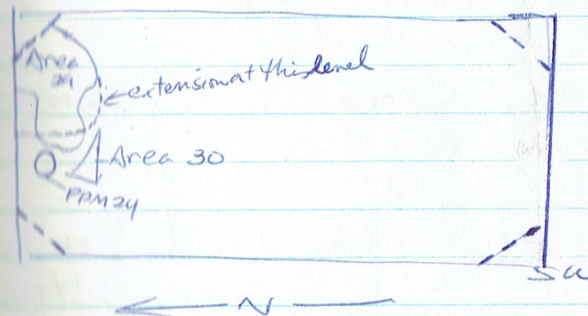 Area
29
extension at this level
Area 30
PPM 24
SW
N